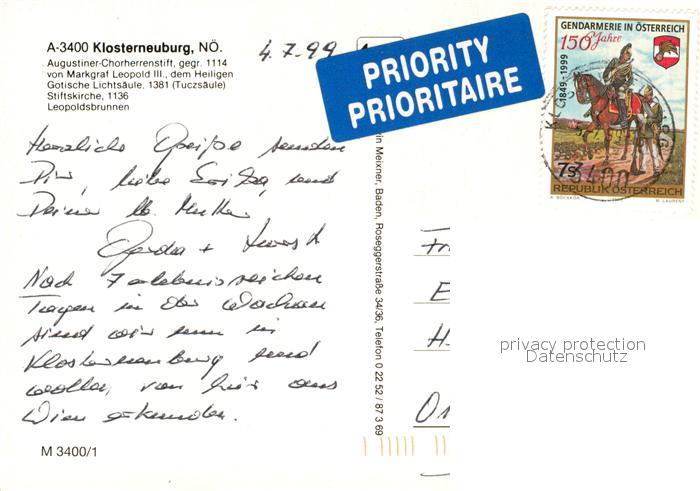 A-3400 Klosterneuburg, NÖ.
Augustiner-Chorherrenstift, gegr. 1114
von Markgraf Leopold III., dem Heiligen
Gotische Lichtsäule, 1381 (Tuczsäule)
Stiftskirche, 1136
Leopoldsbrunnen
4.7.99
PRIORITY
PRIORITAIRE
GENDARMERIE IN ÖSTERREICH
150 Jahre
1849-1999
7S
REPUBLIK ÖSTERREICH
A. BOCSKÖR M. LAURENT
3400
Herzliche Grüße senden
Dir, liebe und
Deiner lb. Mutter
Gerda + Horst
Nach 7 erlebnisreichen
Tagen in der Wachau
sind wir nun in
Klosterneuburg und
wollen von hier aus
Wien erkunden.
M 3400/1
rin Meixner, Baden, Roseggerstraße 34/36, Telefon 0 22 52 / 87 3 69
Fr
E
H
On
privacy protection
Datenschutz